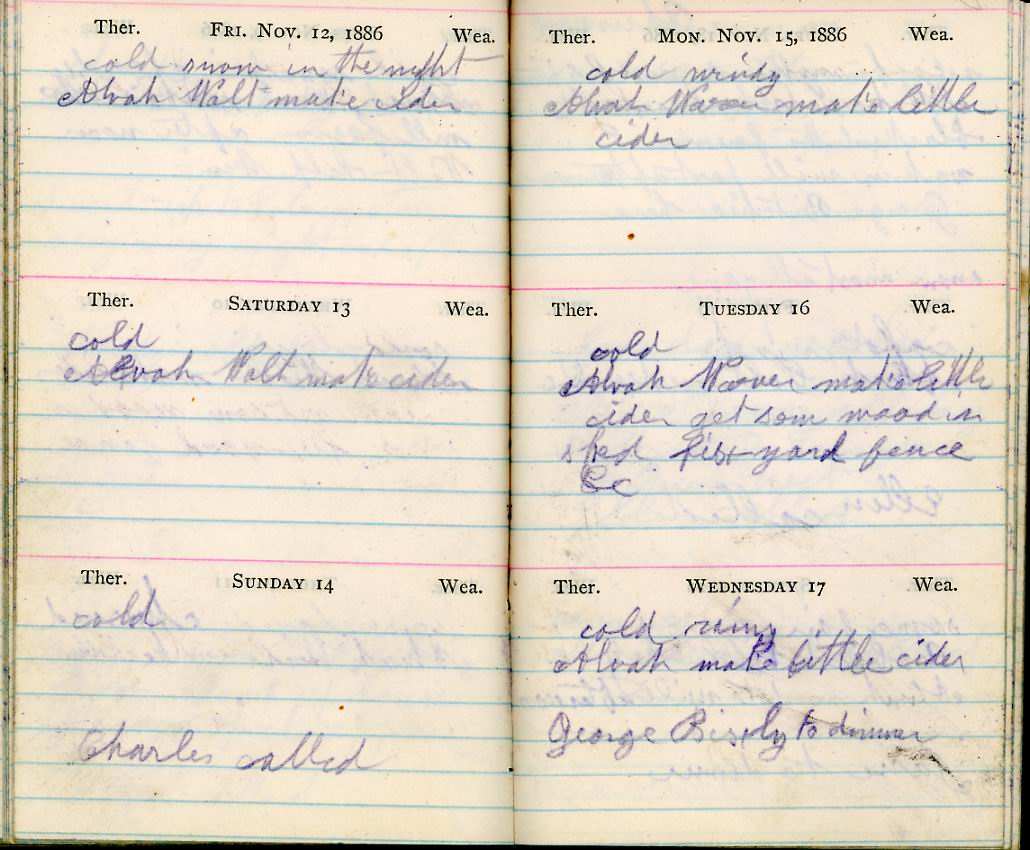 Ther. FRI. NOV. 12, 1886 Wea.
cold snow in the night
Alvah Walt make cider
Ther. SATURDAY 13 Wea.
cold
Alvah Walt make cider
Ther. SUNDAY 14 Wea.
cold
Charles called
Ther. MON. NOV. 15, 1886 Wea.
cold windy
Alvah make little
cider
Ther. TUESDAY 16 Wea.
cold
Alvah make little
cider get som wood in
shed fix yard fence
&c
Ther. WEDNESDAY 17 Wea.
cold
Alvah make little cider
George to dinner